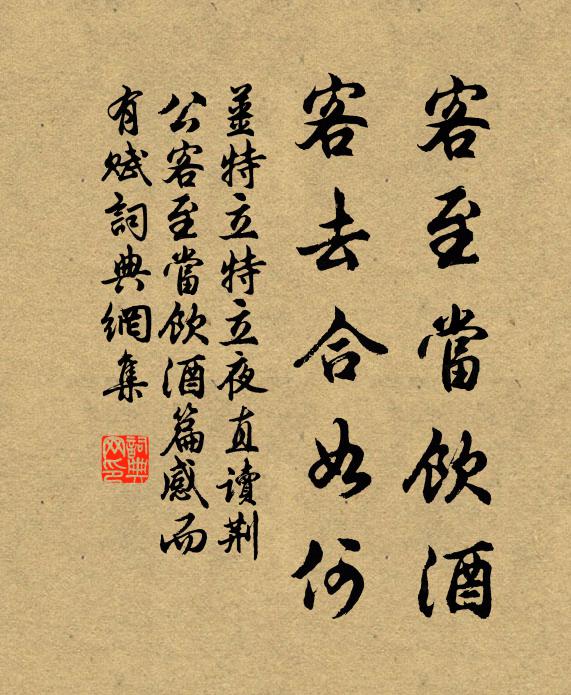 客至當飲酒
客去合如何
姜特立特立夜直讀荆
公客至當飲酒篇感而
有賦詞典網集
詞典
网印